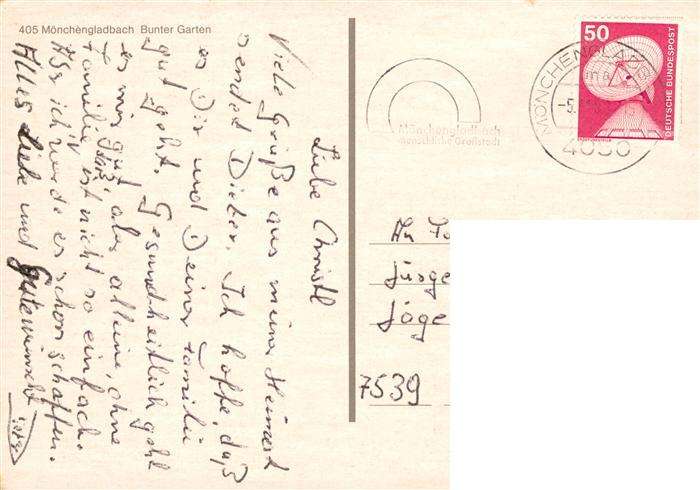 405 Mönchengladbach Bunter Garten
Liebe Christl
Viele Grüße aus meiner Heimat
sendet Dieter. Ich hoffe, daß
es Dir und Deiner Familie
gut geht. Gesundheitlich geht
es mir gut, aber alleine, ohne
Familie ist nicht so einfach.
Aber ich werde es schon schaffen.
Alles Liebe und Gute wünscht
MÖNCHENGLADB
-5.
4050
Mönchengladbach
50
DEUTSCHE BUNDESPOST
An
Jürge
Jäge
7539